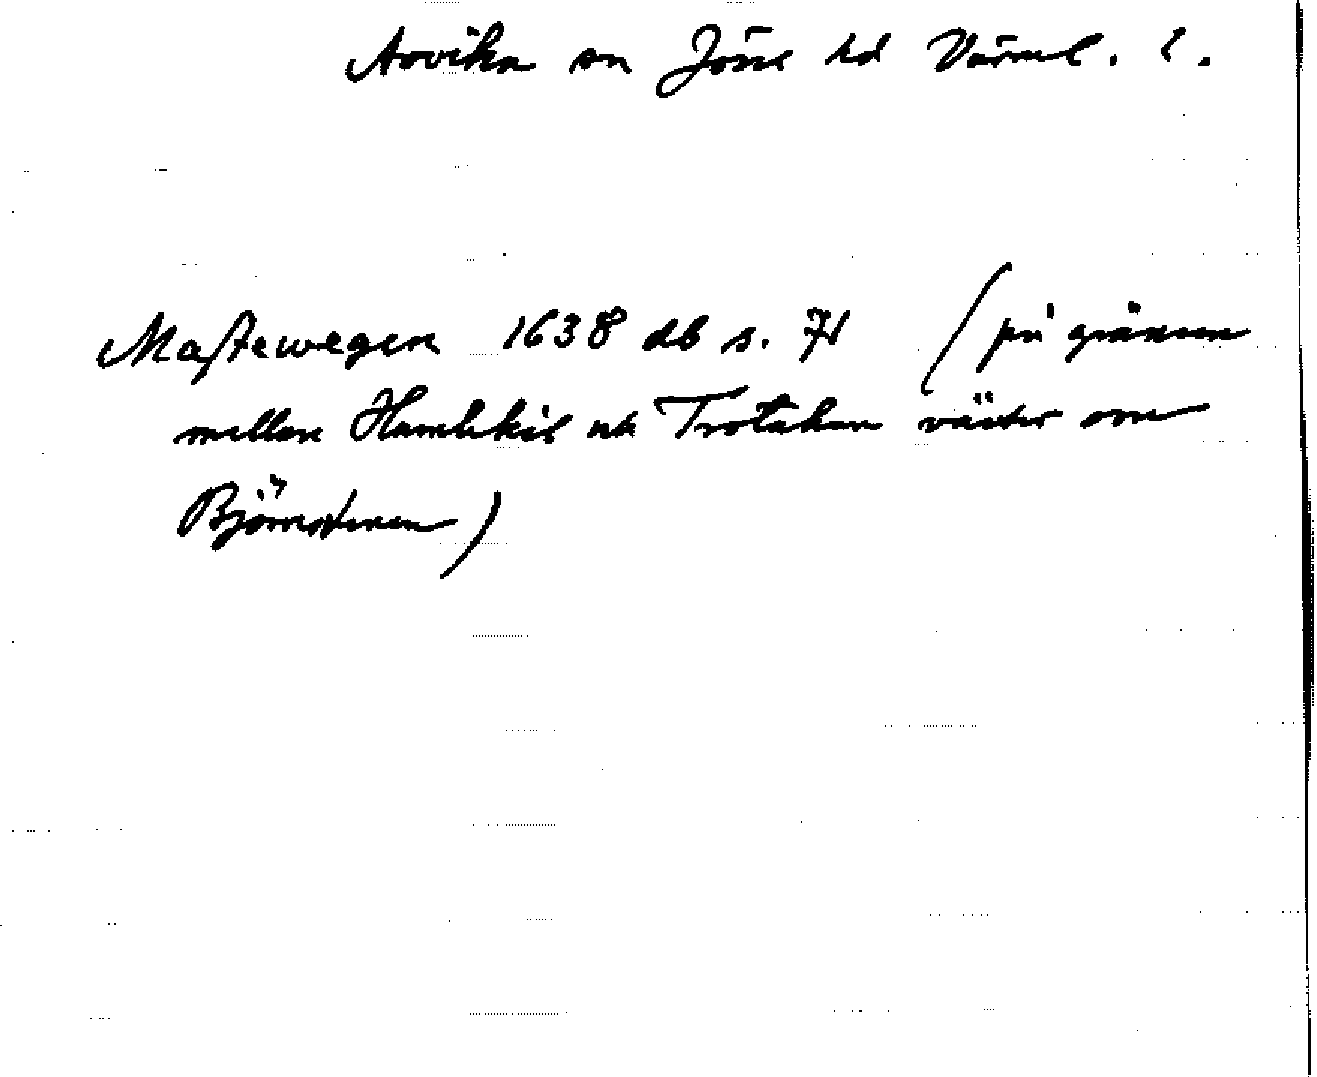 Arvika sn Jösse hd Värml. l.
Mastewegen 1638 db s. 71 (på gränsen
mellan Humlekil och Trotakan väster om
Björnstenen)